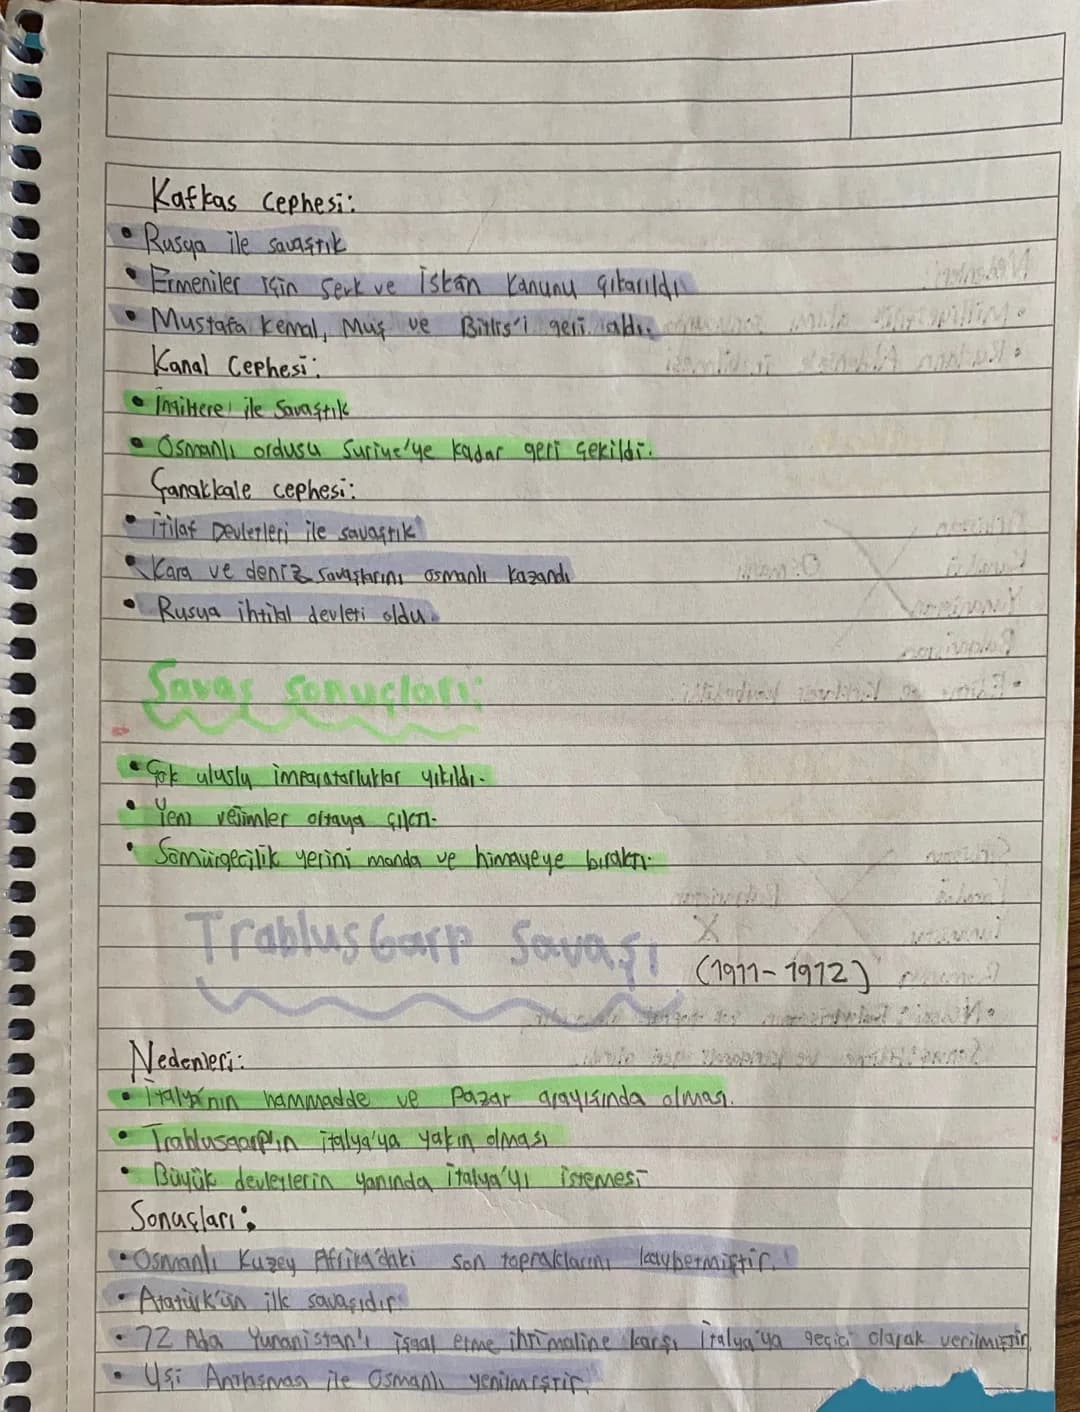 Kafkas Cephesi:
• Rusya ile savaştık
• Ermeniler için Sevk ve İskân Kanunu çıkarıldı
• Mustafa Kemal, Muş ve Bitlis'i geri aldı.
Kanal Cephesi:
• İngiltere ile Savaştık
• Osmanlı ordusu Suriye'ye kadar geri çekildi.
Çanakkale cephesi:
• İtilaf Devletleri ile savaştık
• Kara ve deniz savaşlarını osmanlı kazandı
• Rusya ihtilal devleti oldu.
Savaş sonuçları:
• Çok uluslu imparatorluklar yıkıldı.
• Yeni rejimler ortaya çıktı.
• Sömürgecilik yerini manda ve himayeye bıraktı.
TrablusGarp Savaşı
(1911-1912)
Nedenleri:
• İtalya'nın hammadde ve Pazar arayışında olması.
• Trablusgarp'ın italya'ya yakın olması
• Büyük devletlerin yanında italya'yı istemesi
Sonuçları:
• Osmanlı Kuzey Afrika'daki son topraklarını kaybetmiştir.
• Atatürk'ün ilk savaşıdır
• 12 Ada Yunanistan'ı işgal etme ihtimaline karşı İtalya'ya geçici olarak verilmiştir
• Uşi Antlaşması ile Osmanlı yenilmiştir.